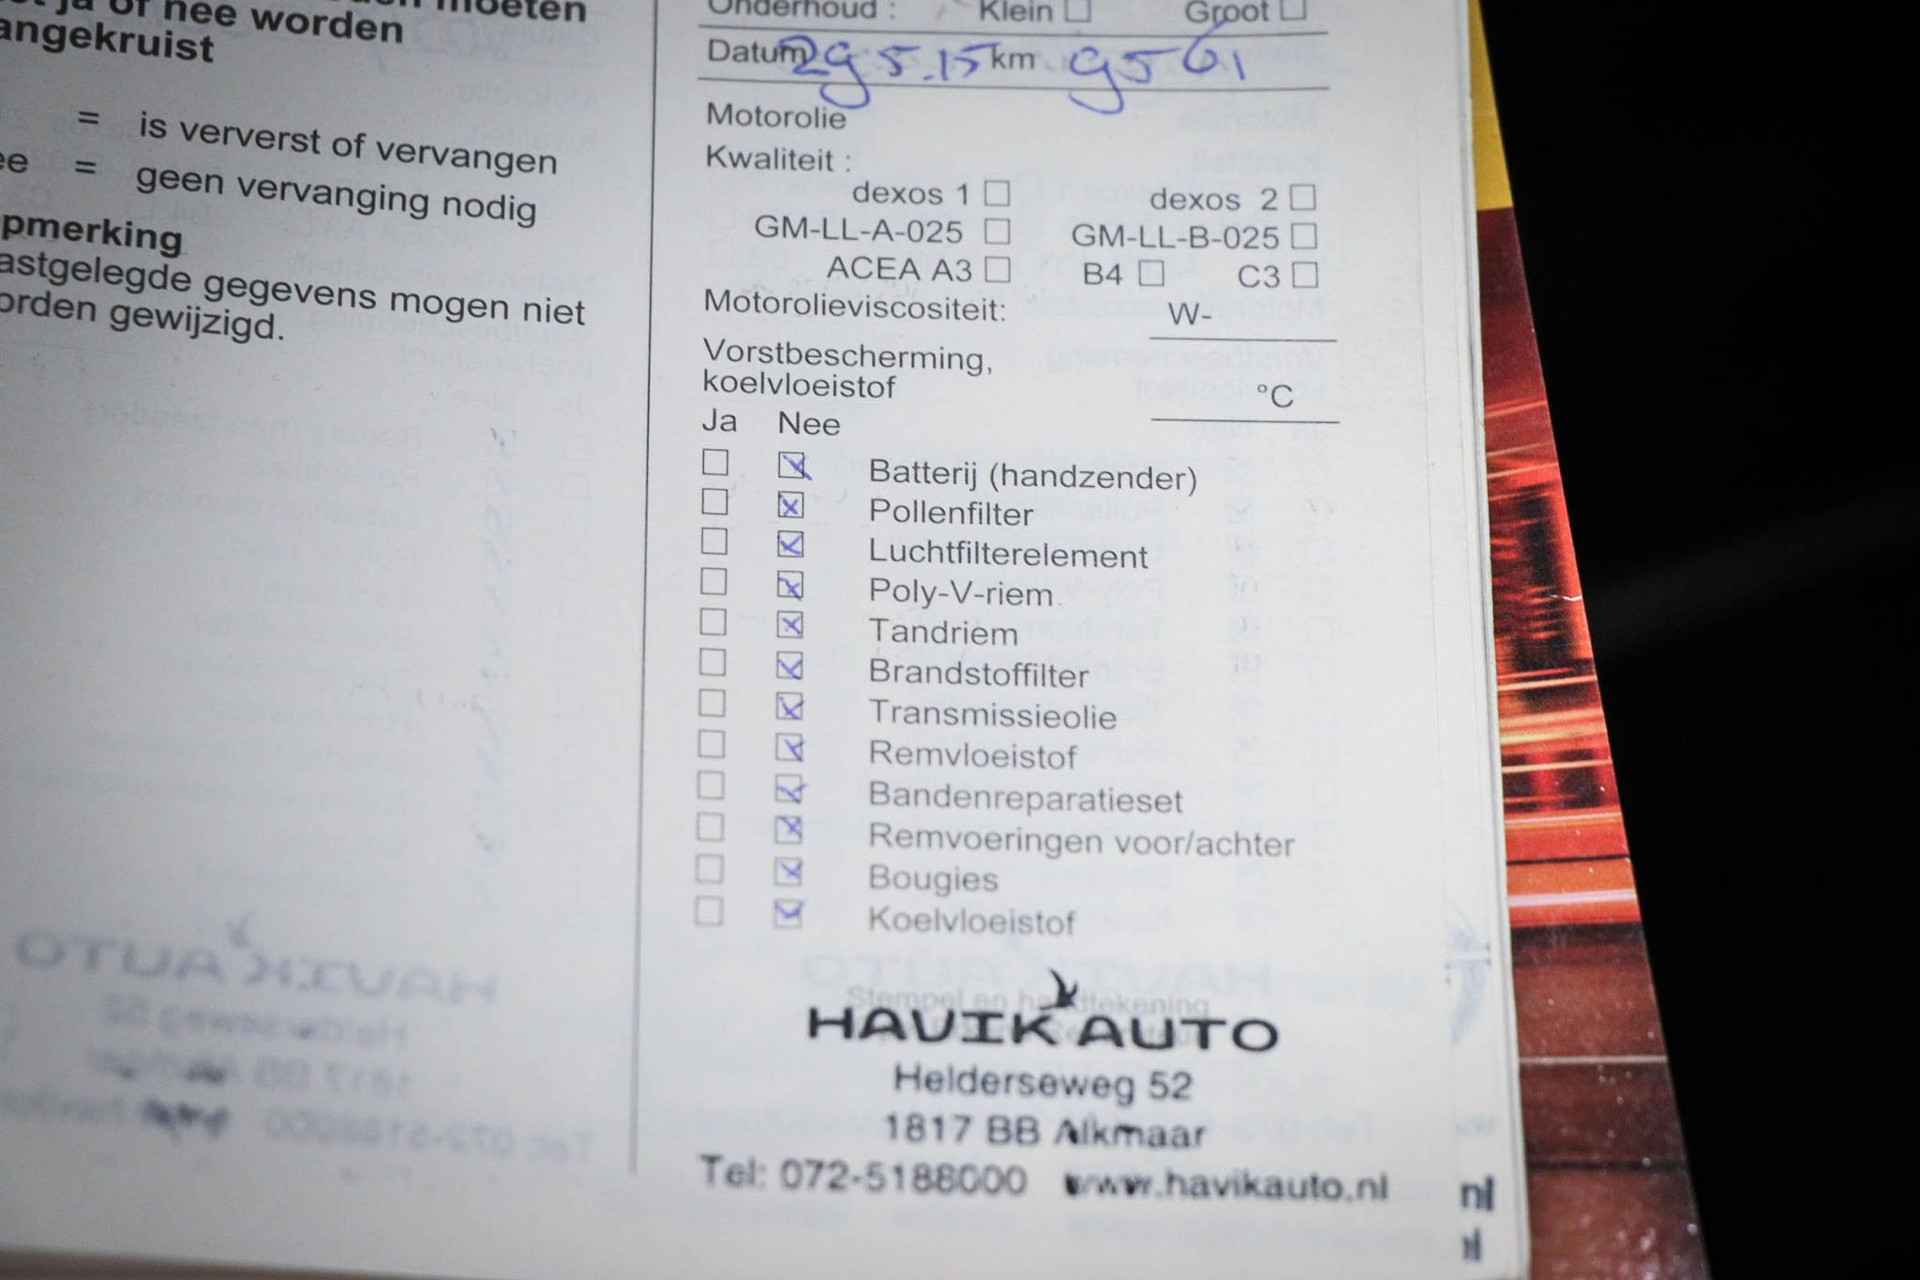 ja of nee worden
angekruist
= is ververst of vervangen
ee = geen vervanging nodig
pmerking
astgelegde gegevens mogen niet
orden gewijzigd.
Onderhoud : Klein Groot
Datum 29 5.15 km 9561
Motorolie
Kwaliteit :
dexos 1 dexos 2
GM-LL-A-025 GM-LL-B-025
ACEA A3 B4 C3
Motorolieviscositeit: W-
Vorstbescherming,
koelvloeistof °C
Ja Nee
Batterij (handzender)
Pollenfilter
Luchtfilterelement
Poly-V-riem
Tandriem
Brandstoffilter
Transmissieolie
Remvloeistof
Bandenreparatieset
Remvoeringen voor/achter
Bougies
Koelvloeistof
Stempel en handtekening
HAVIK AUTO
Helderseweg 52
1817 BB Alkmaar
Tel: 072-5188000 www.havikauto.nl
nl